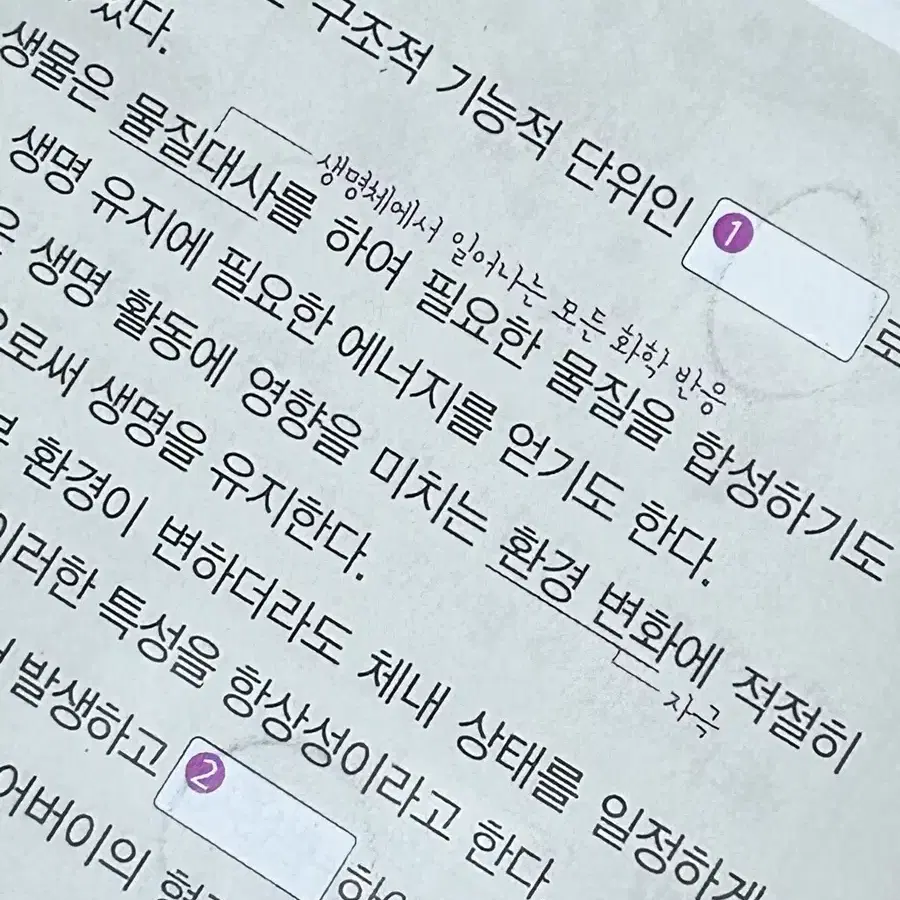 구조적 기능적 단위인 1 로
있다.
생물은 물질대사를 하여 필요한 물질을 합성하기도
생명체에서 일어나는 모든 화학 반응
생명 유지에 필요한 에너지를 얻기도 한다.
은 생명 활동에 영향을 미치는 환경 변화에 적절히
자극
으로써 생명을 유지한다.
부 환경이 변하더라도 체내 상태를 일정하게
이러한 특성을 항상성이라고 한다
발생하고 2
어버이의